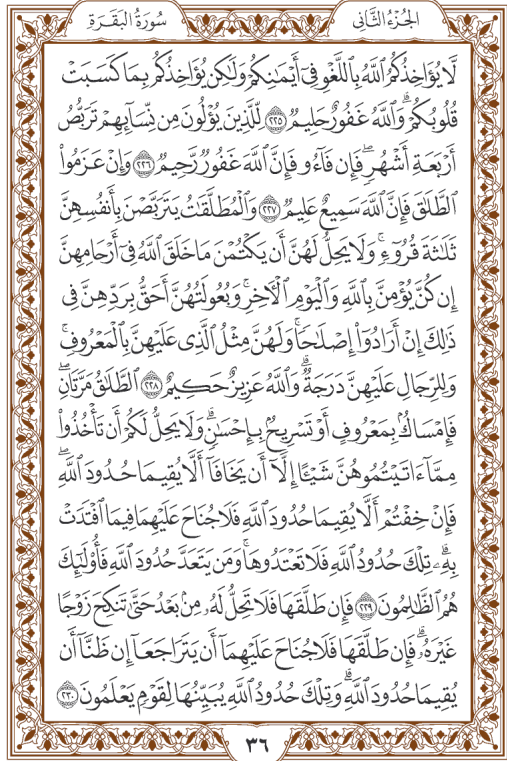 الجُزْءُ الثَّانِي
سُورَةُ البَقَرَةِ
لَّا يُؤَاخِذُكُمُ ٱللَّهُ بِٱللَّغْوِ فِىٓ أَيْمَـٰنِكُمْ وَلَـٰكِن يُؤَاخِذُكُم بِمَا كَسَبَتْ
قُلُوبُكُمْ ۗ وَٱللَّهُ غَفُورٌ حَلِيمٌ ٢٢٥ لِّلَّذِينَ يُؤْلُونَ مِن نِّسَآئِهِمْ تَرَبُّصُ
أَرْبَعَةِ أَشْهُرٍ ۖ فَإِن فَآءُو فَإِنَّ ٱللَّهَ غَفُورٌ رَّحِيمٌ ٢٢٦ وَإِنْ عَزَمُوا۟
ٱلطَّلَـٰقَ فَإِنَّ ٱللَّهَ سَمِيعٌ عَلِيمٌ ٢٢٧ وَٱلْمُطَلَّقَـٰتُ يَتَرَبَّصْنَ بِأَنفُسِهِنَّ
ثَلَـٰثَةَ قُرُوٓءٍ ۚ وَلَا يَحِلُّ لَهُنَّ أَن يَكْتُمْنَ مَا خَلَقَ ٱللَّهُ فِىٓ أَرْحَامِهِنَّ
إِن كُنَّ يُؤْمِنَّ بِٱللَّهِ وَٱلْيَوْمِ ٱلْـَٔاخِرِ ۚ وَبُعُولَتُهُنَّ أَحَقُّ بِرَدِّهِنَّ فِى
ذَٰلِكَ إِنْ أَرَادُوٓا۟ إِصْلَـٰحًا ۚ وَلَهُنَّ مِثْلُ ٱلَّذِى عَلَيْهِنَّ بِٱلْمَعْرُوفِ ۚ
وَلِلرِّجَالِ عَلَيْهِنَّ دَرَجَةٌ ۗ وَٱللَّهُ عَزِيزٌ حَكِيمٌ ٢٢٨ ٱلطَّلَـٰقُ مَرَّتَانِ ۖ
فَإِمْسَاكٌۢ بِمَعْرُوفٍ أَوْ تَسْرِيحٌۢ بِإِحْسَـٰنٍ ۗ وَلَا يَحِلُّ لَكُمْ أَن تَأْخُذُوا۟
مِمَّآ ءَاتَيْتُمُوهُنَّ شَيْـًٔا إِلَّآ أَن يَخَافَآ أَلَّا يُقِيمَا حُدُودَ ٱللَّهِ ۖ
فَإِنْ خِفْتُمْ أَلَّا يُقِيمَا حُدُودَ ٱللَّهِ فَلَا جُنَاحَ عَلَيْهِمَا فِيمَا ٱفْتَدَتْ
بِهِۦ ۗ تِلْكَ حُدُودُ ٱللَّهِ فَلَا تَعْتَدُوهَا ۚ وَمَن يَتَعَدَّ حُدُودَ ٱللَّهِ فَأُو۟لَـٰٓئِكَ
هُمُ ٱلظَّـٰلِمُونَ ٢٢٩ فَإِن طَلَّقَهَا فَلَا تَحِلُّ لَهُۥ مِنۢ بَعْدُ حَتَّىٰ تَنكِحَ زَوْجًا
غَيْرَهُۥ ۗ فَإِن طَلَّقَهَا فَلَا جُنَاحَ عَلَيْهِمَآ أَن يَتَرَاجَعَآ إِن ظَنَّآ أَن
يُقِيمَا حُدُودَ ٱللَّهِ ۗ وَتِلْكَ حُدُودُ ٱللَّهِ يُبَيِّنُهَا لِقَوْمٍ يَعْلَمُونَ ٢٣٠
٣٦